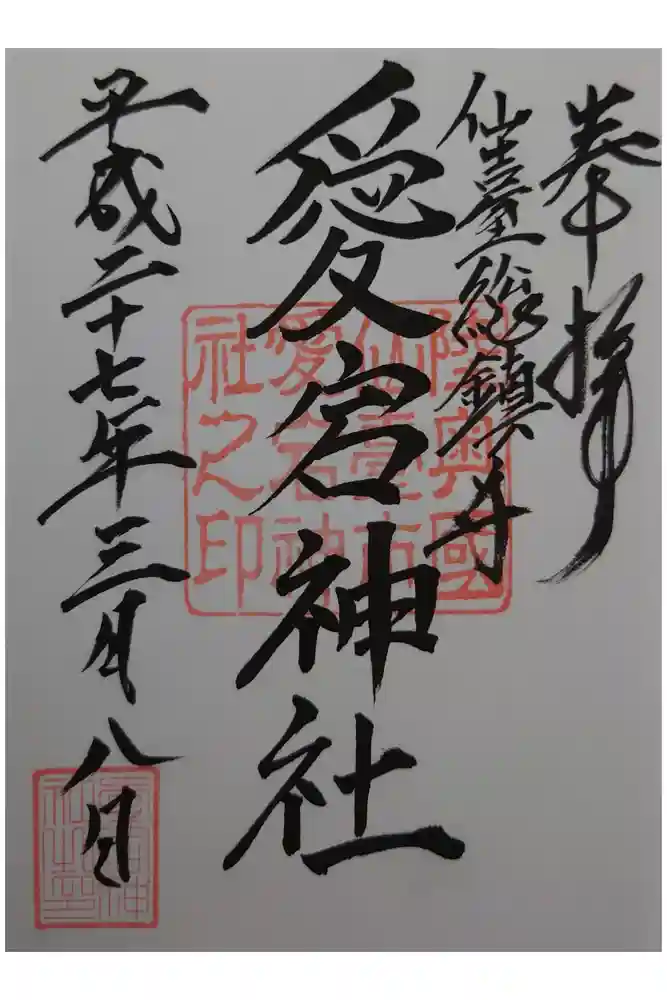 奉拝
仙臺総鎮守
愛宕神社
平成二十七年三月八日
陸奥國
仙臺市
愛宕神
社之印